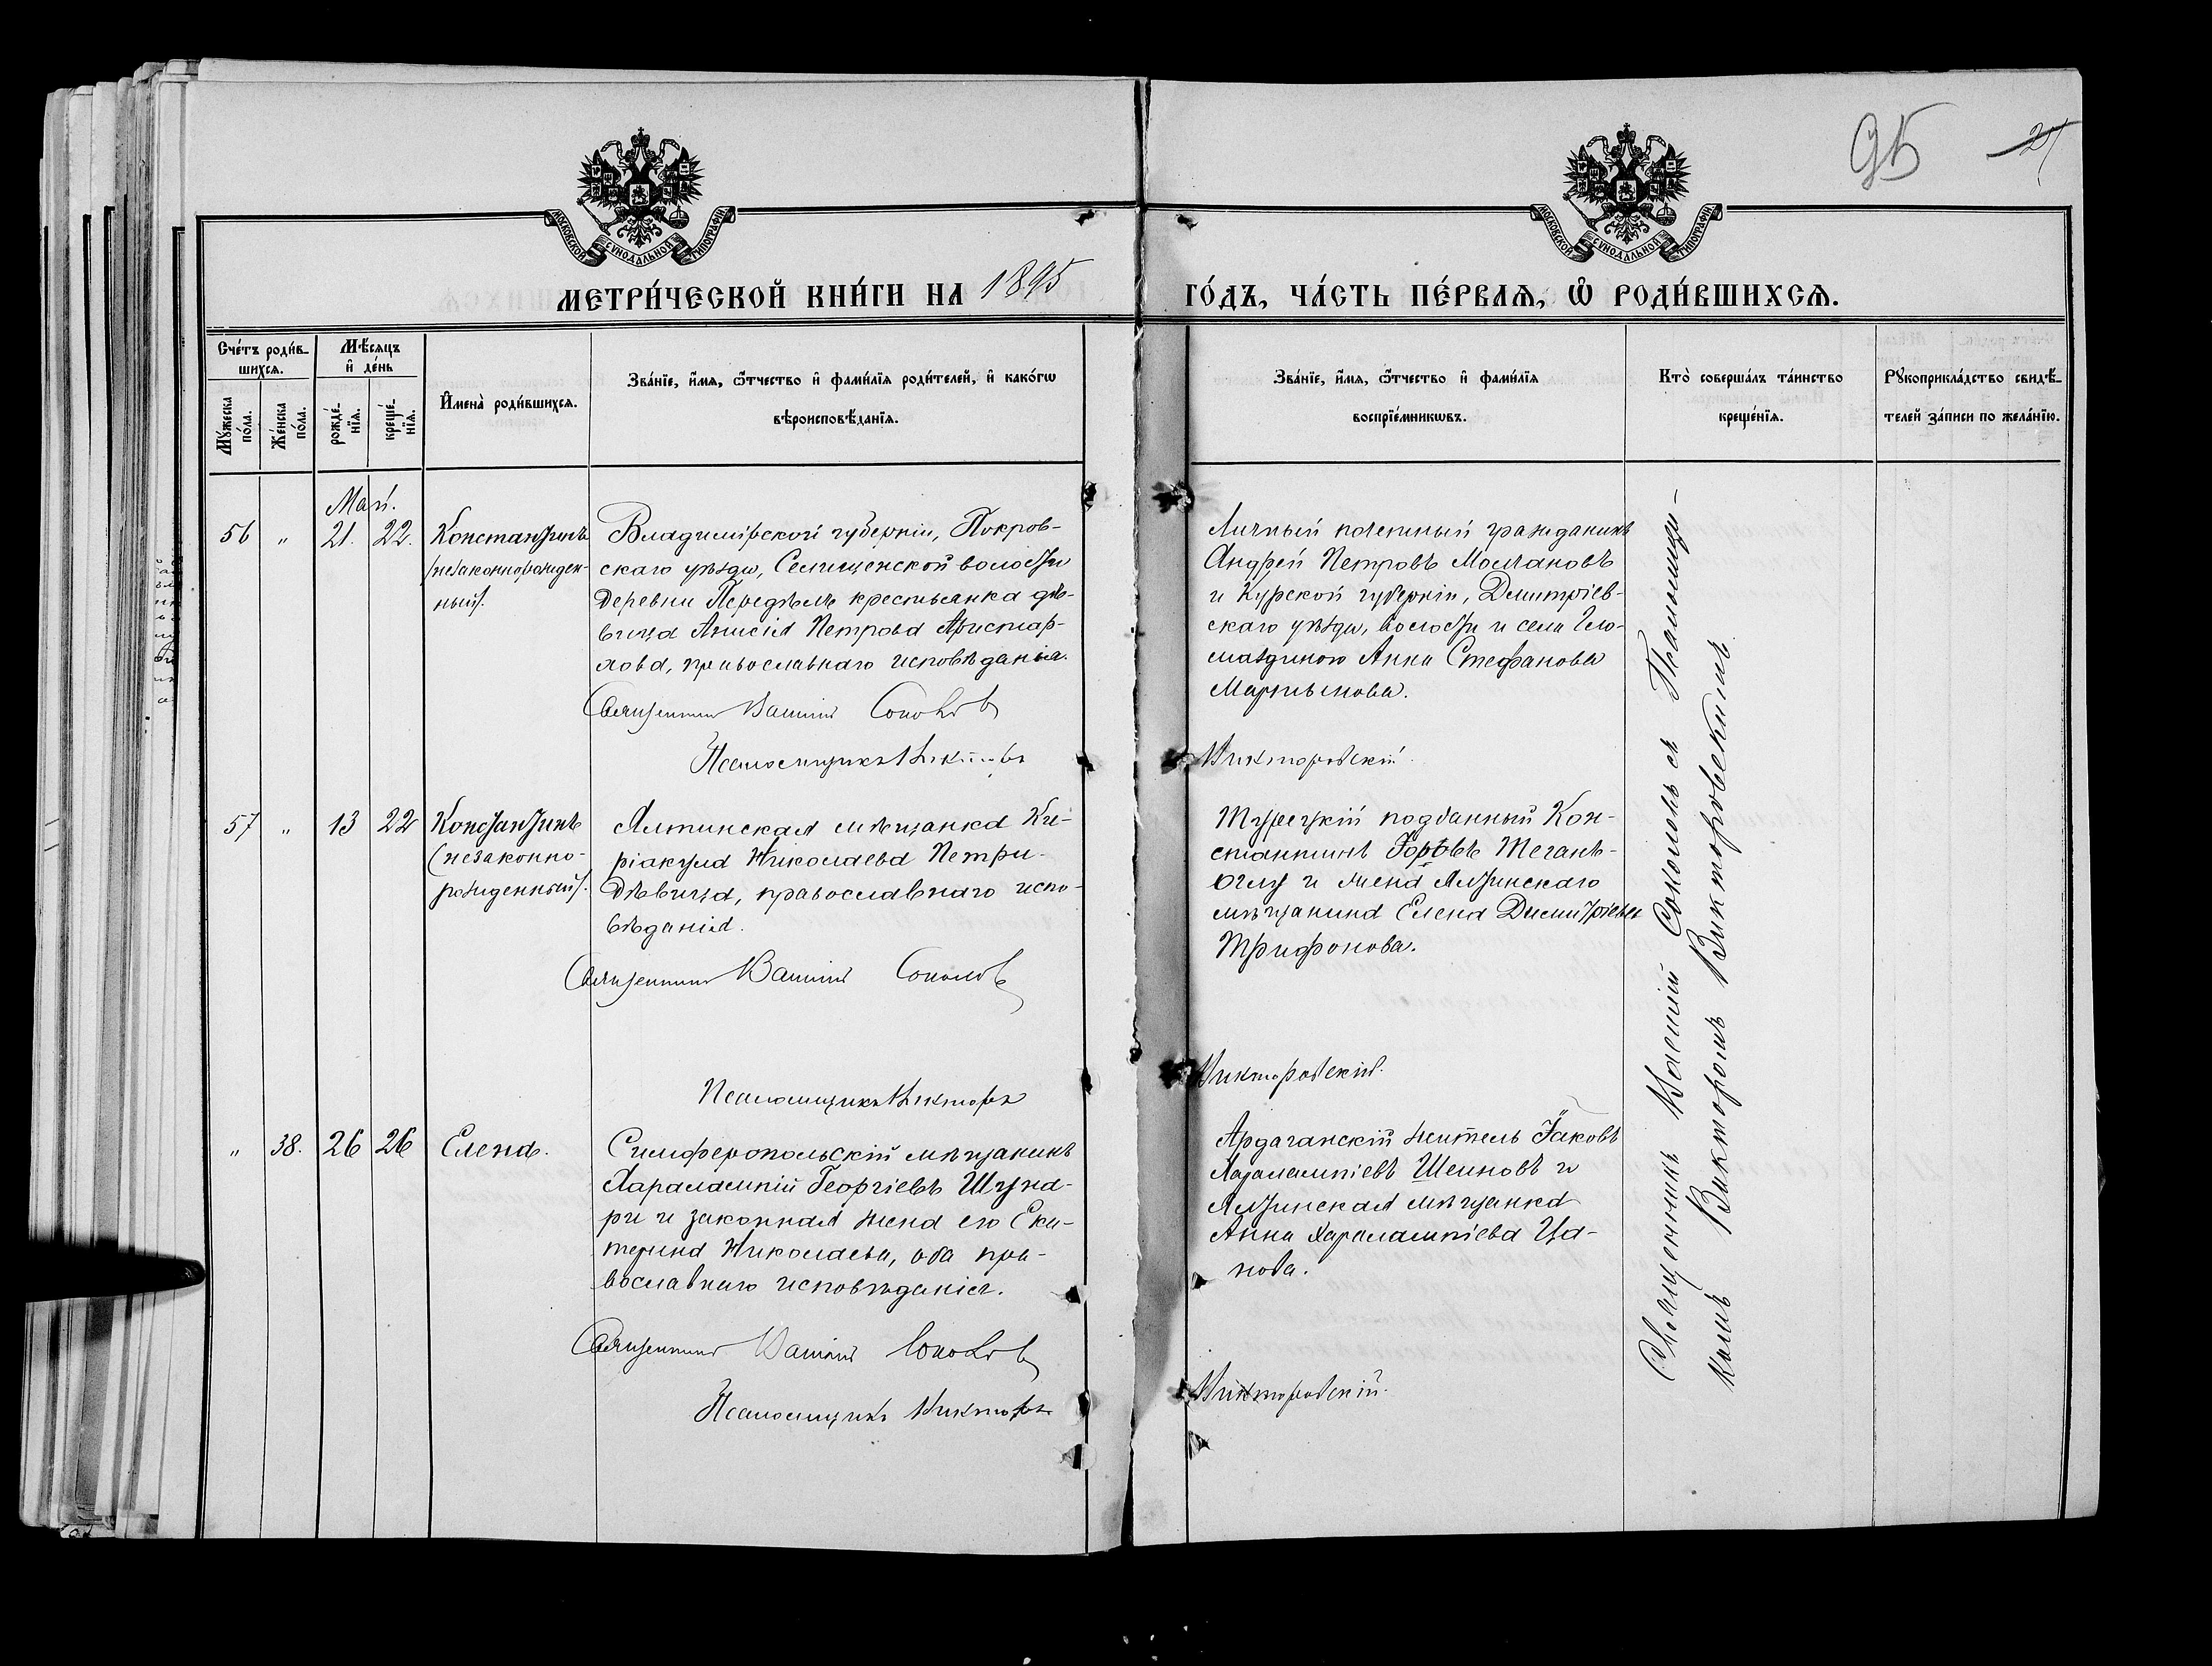 95 27
МОСКОВСКОЙ СѴНОДАЛЬНОЙ ТИПОГРАФІИ
МОСКОВСКОЙ СѴНОДАЛЬНОЙ ТИПОГРАФІИ
МЕТРИ́ЧЕСКОЙ КНИ́ГИ НА 1895 ГО́ДЪ, ЧА́СТЬ ПЕ́РВАѦ, Ѽ РОДИ́ВШИХСѦ.
Сче́тъ роди́в-
шихсѧ.
Мѣ́сѧцъ
и҆ де́нь
Мꙋ́жеска
по́ла.
Же́нска
по́ла.
рожде́-
нїѧ.
креще́-
нїѧ.
И҆мена̀ роди́вшихсѧ.
Зва́нїе, и҆́мѧ, ѻ҆́тчество и҆ фами́лїѧ роди́телей, и҆ како́гѡ
вѣроисповѣ́данїѧ.
Зва́нїе, и҆́мѧ, ѻ҆́тчество и҆ фами́лїѧ
воспрїе́мникѡвъ.
Кто̀ соверша́лъ та́инство
креще́нїѧ.
Рꙋкоприкла́дство свидѣ́-
телей за́писи по жела́нїю.
Май.
56 " 21. 22. Константинъ
/незаконнорожден-
ный/.
Владимірской губерніи, Покров-
скаго уѣзда, Селищенской волости
деревни Передѣлъ крестьянка дѣ-
вица Анисія Петрова Аристар-
хова, православнаго исповѣданія.
Священникъ Василій Соколовъ
Псаломщикъ Викторъ
Личный почетный гражданинъ
Андрей Петровъ Молчановъ
и Курской губерніи, Димитріев-
скаго уѣзда, волости и села
Анна Стефанова
Мартынова.
Викторовскій.
57 " 13 22 Константинъ
(незаконно-
рожденный/.
Ялтинская мѣщанка Ки-
ріакула Николаева Петри-
дѣвица, православнаго испо-
вѣданія.
Священникъ Василій Соколовъ
Псаломщикъ Викторъ
Турецкій подданный Кон-
стантинъ
оглу и жена Ялтинскаго
мѣщанина Елена Димитріева
Трифонова.
Викторовскій.
" 38. 26 26 Елена.
Симферопольскій мѣщанинъ
Харалампій Георгіевъ Шуна-
ри и законная жена его Ека-
терина Николаева, оба пра-
вославнаго исповѣданія.
Священникъ Василій Соколовъ
Псаломщикъ Викторъ
Ардаганскій житель Іаковъ
Харалампіевъ Шеиновъ и
Ялтинская мѣщанка
Анна Харалампіева Ца-
нова.
Викторовскій.
Священникъ Василій Соколовъ съ Псаломщи-
комъ Викторомъ Викторовскимъ